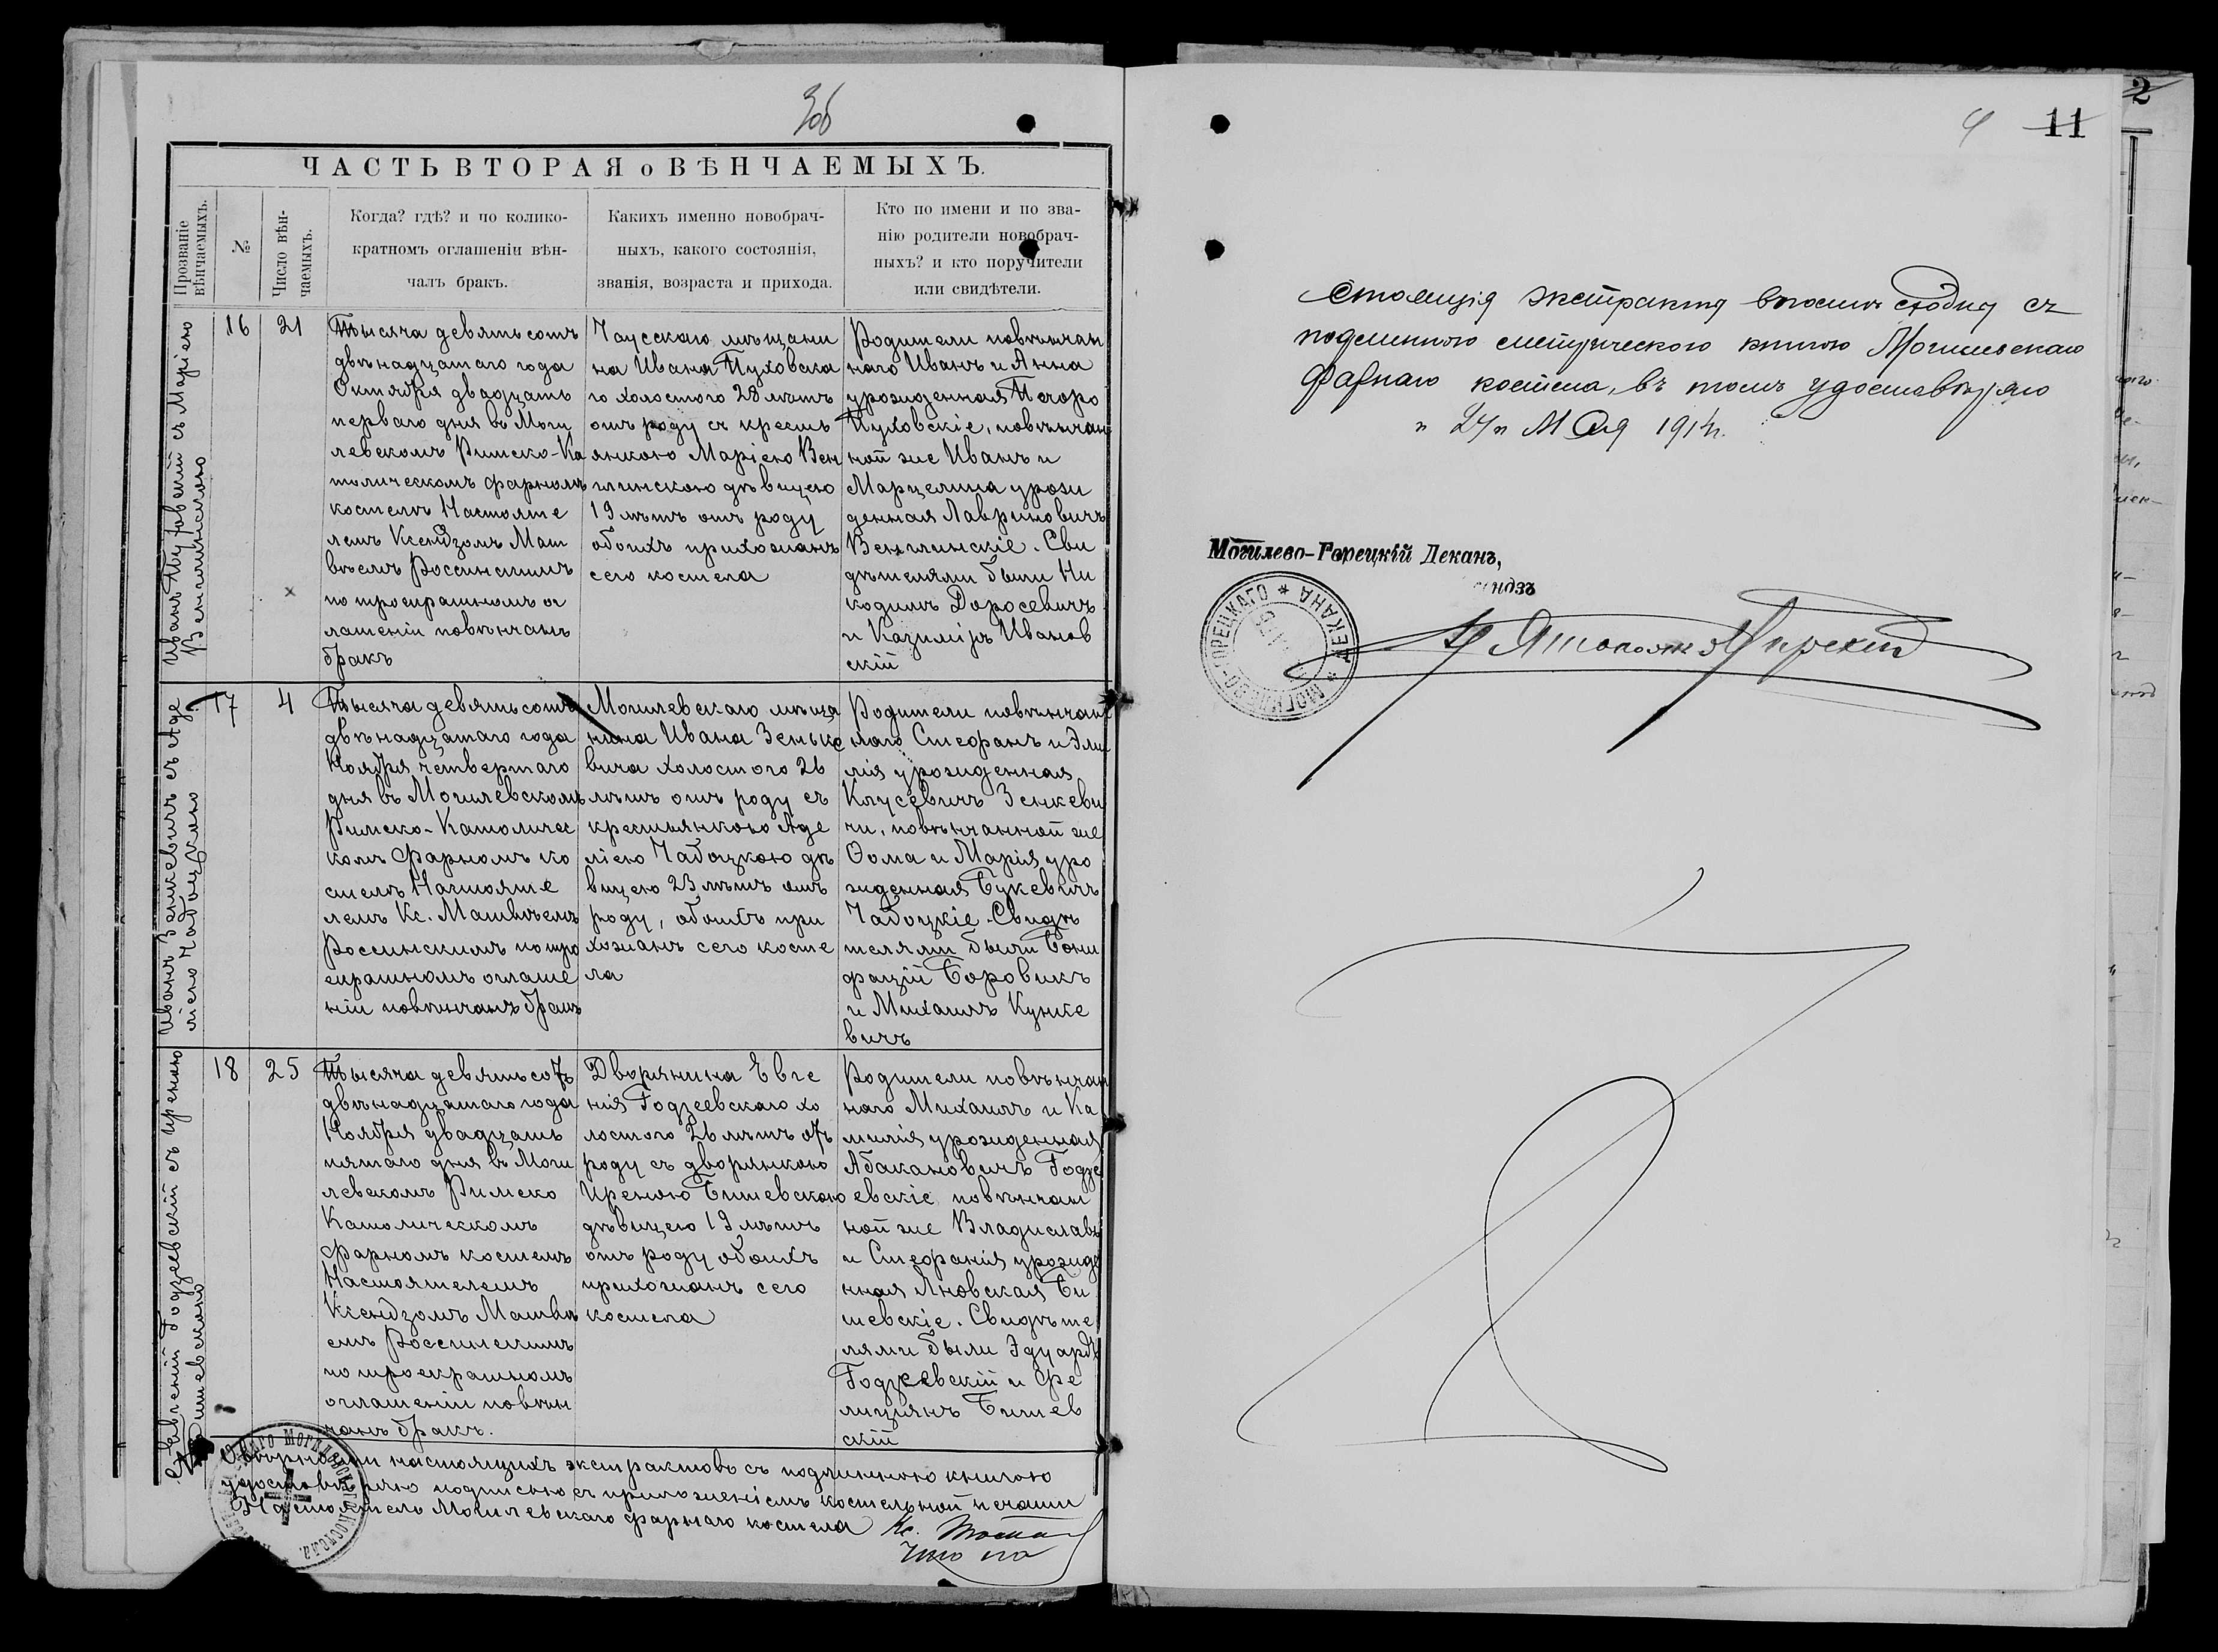 3об
ЧАСТЬ ВТОРАЯ о ВѢНЧАЕМЫХЪ.
Прозваніе вѣнчаемыхъ.
№
Число вѣн-
чаемыхъ.
Когда? гдѣ? и по колико-
кратномъ оглашеніи вѣн-
чалъ бракъ.
Какихъ именно новобрач-
ныхъ, какого состоянія,
званія, возраста и прихода.
Кто по имени и по зва-
нію родители новобрач-
ныхъ? и кто поручители
или свидѣтели.
Иванъ Пуховскій съ Маріею
Венглинскою
16
21
Тысяча девятьсотъ
двѣнадцатаго года
Октября двадцать
перваго дня въ Моги
левскомъ Римско-Ка
толическомъ фарномъ
костелѣ Настояте
лемъ Ксендзомъ Мат
вѣемъ Россинскимъ
по троекратномъ ог
лашеніи повѣнчанъ
бракъ
Чаусскаго мѣщани
на Ивана Пуховска
го холостого 28 лѣтъ
отъ роду съ кресть
янкою Маріею Вен
глинскою дѣвицею
19 лѣтъ отъ роду
обоихъ прихожанъ
сего костела
Родители повѣнчан
наго Иванъ и Анна
урожденная
Пуховскіе, повѣнчан
ной же Иванъ и
Марцелина урож
денная Лавриновичъ
Венглинскіе. Сви
дѣтелями были Ни
кодимъ Доросевичъ
и Казиміръ Иванов
скій
Иванъ Зенкевичъ съ Аде
ліею Чабоцкою
17
4
Тысяча девятьсотъ
двѣнадцатаго года
Ноября четвертаго
дня въ Могилевскомъ
Римско-Католичес
комъ фарномъ ко
стелѣ Настояте
лемъ Кс. Матвѣемъ
Россинскимъ по тро
екратномъ оглаше
ніи повѣнчанъ бракъ
Могилевскаго мѣща
нина Ивана Зенько
вича холостого 26
лѣтъ отъ роду съ
крестьянкою Аде
ліею Чабоцкою дѣ
вицею 23 лѣтъ отъ
роду, обоихъ при
хожанъ сего косте
ла
Родители повѣнчан
наго Стефанъ и Эми
лія урожденная
Клусевичъ Зенкеви
чи, повѣнчанной же
Ѳома и Марія уро
жденная Букевичъ
Чабоцкіе. Свидѣ
телями были Бони
фацій Боровикъ
и Михаилъ Кунке
вичъ
Евгеній Годзеевскій съ Иреною
Бишевскою
18
25
Тысяча девятьсотъ
двѣнадцатаго года
Ноября двадцать
пятаго дня въ Моги
левскомъ Римско
Католическомъ
фарномъ костелѣ
Настоятелемъ
Ксендзомъ Матвѣ
емъ Россинскимъ
по троекратномъ
оглашеніи повѣн
чанъ бракъ.
Дворянина Евге
нія Годзеевскаго хо
лостого 26 лѣтъ отъ
роду съ дворянкою
Иреною Бишевскою
дѣвицею 19 лѣтъ
отъ роду обоихъ
прихожанъ сего
костела
Родители повѣнчан
наго Михаилъ и Ка
милія урожденная
Абакановичъ Годзе
евскіе, повѣнчан
ной же Владиславъ
и Стефанія урожде
нная Яновская Би
шевскіе. Свидѣте
лями были Эдуардъ
Годзеевскій и Фе
лиціянъ Бишев
скій
настоящихъ экстрактовъ съ подлинною книгою
удостовѣряю подписью съ приложеніемъ костельной печати
Настоятель Могилевскаго фарнаго костела Кс.
4 11
экстрактъ сходны съ
подлинною метрическою книгою Могилевскаго
фарнаго костела, въ томъ удостовѣряю
„ 24 „ Мая 1914 г.
Могилево-Горецкій Деканъ,
Ксендзъ
МОГИЛЕВО-ГОРЕЦКАГО * ДЕКАНА *
2